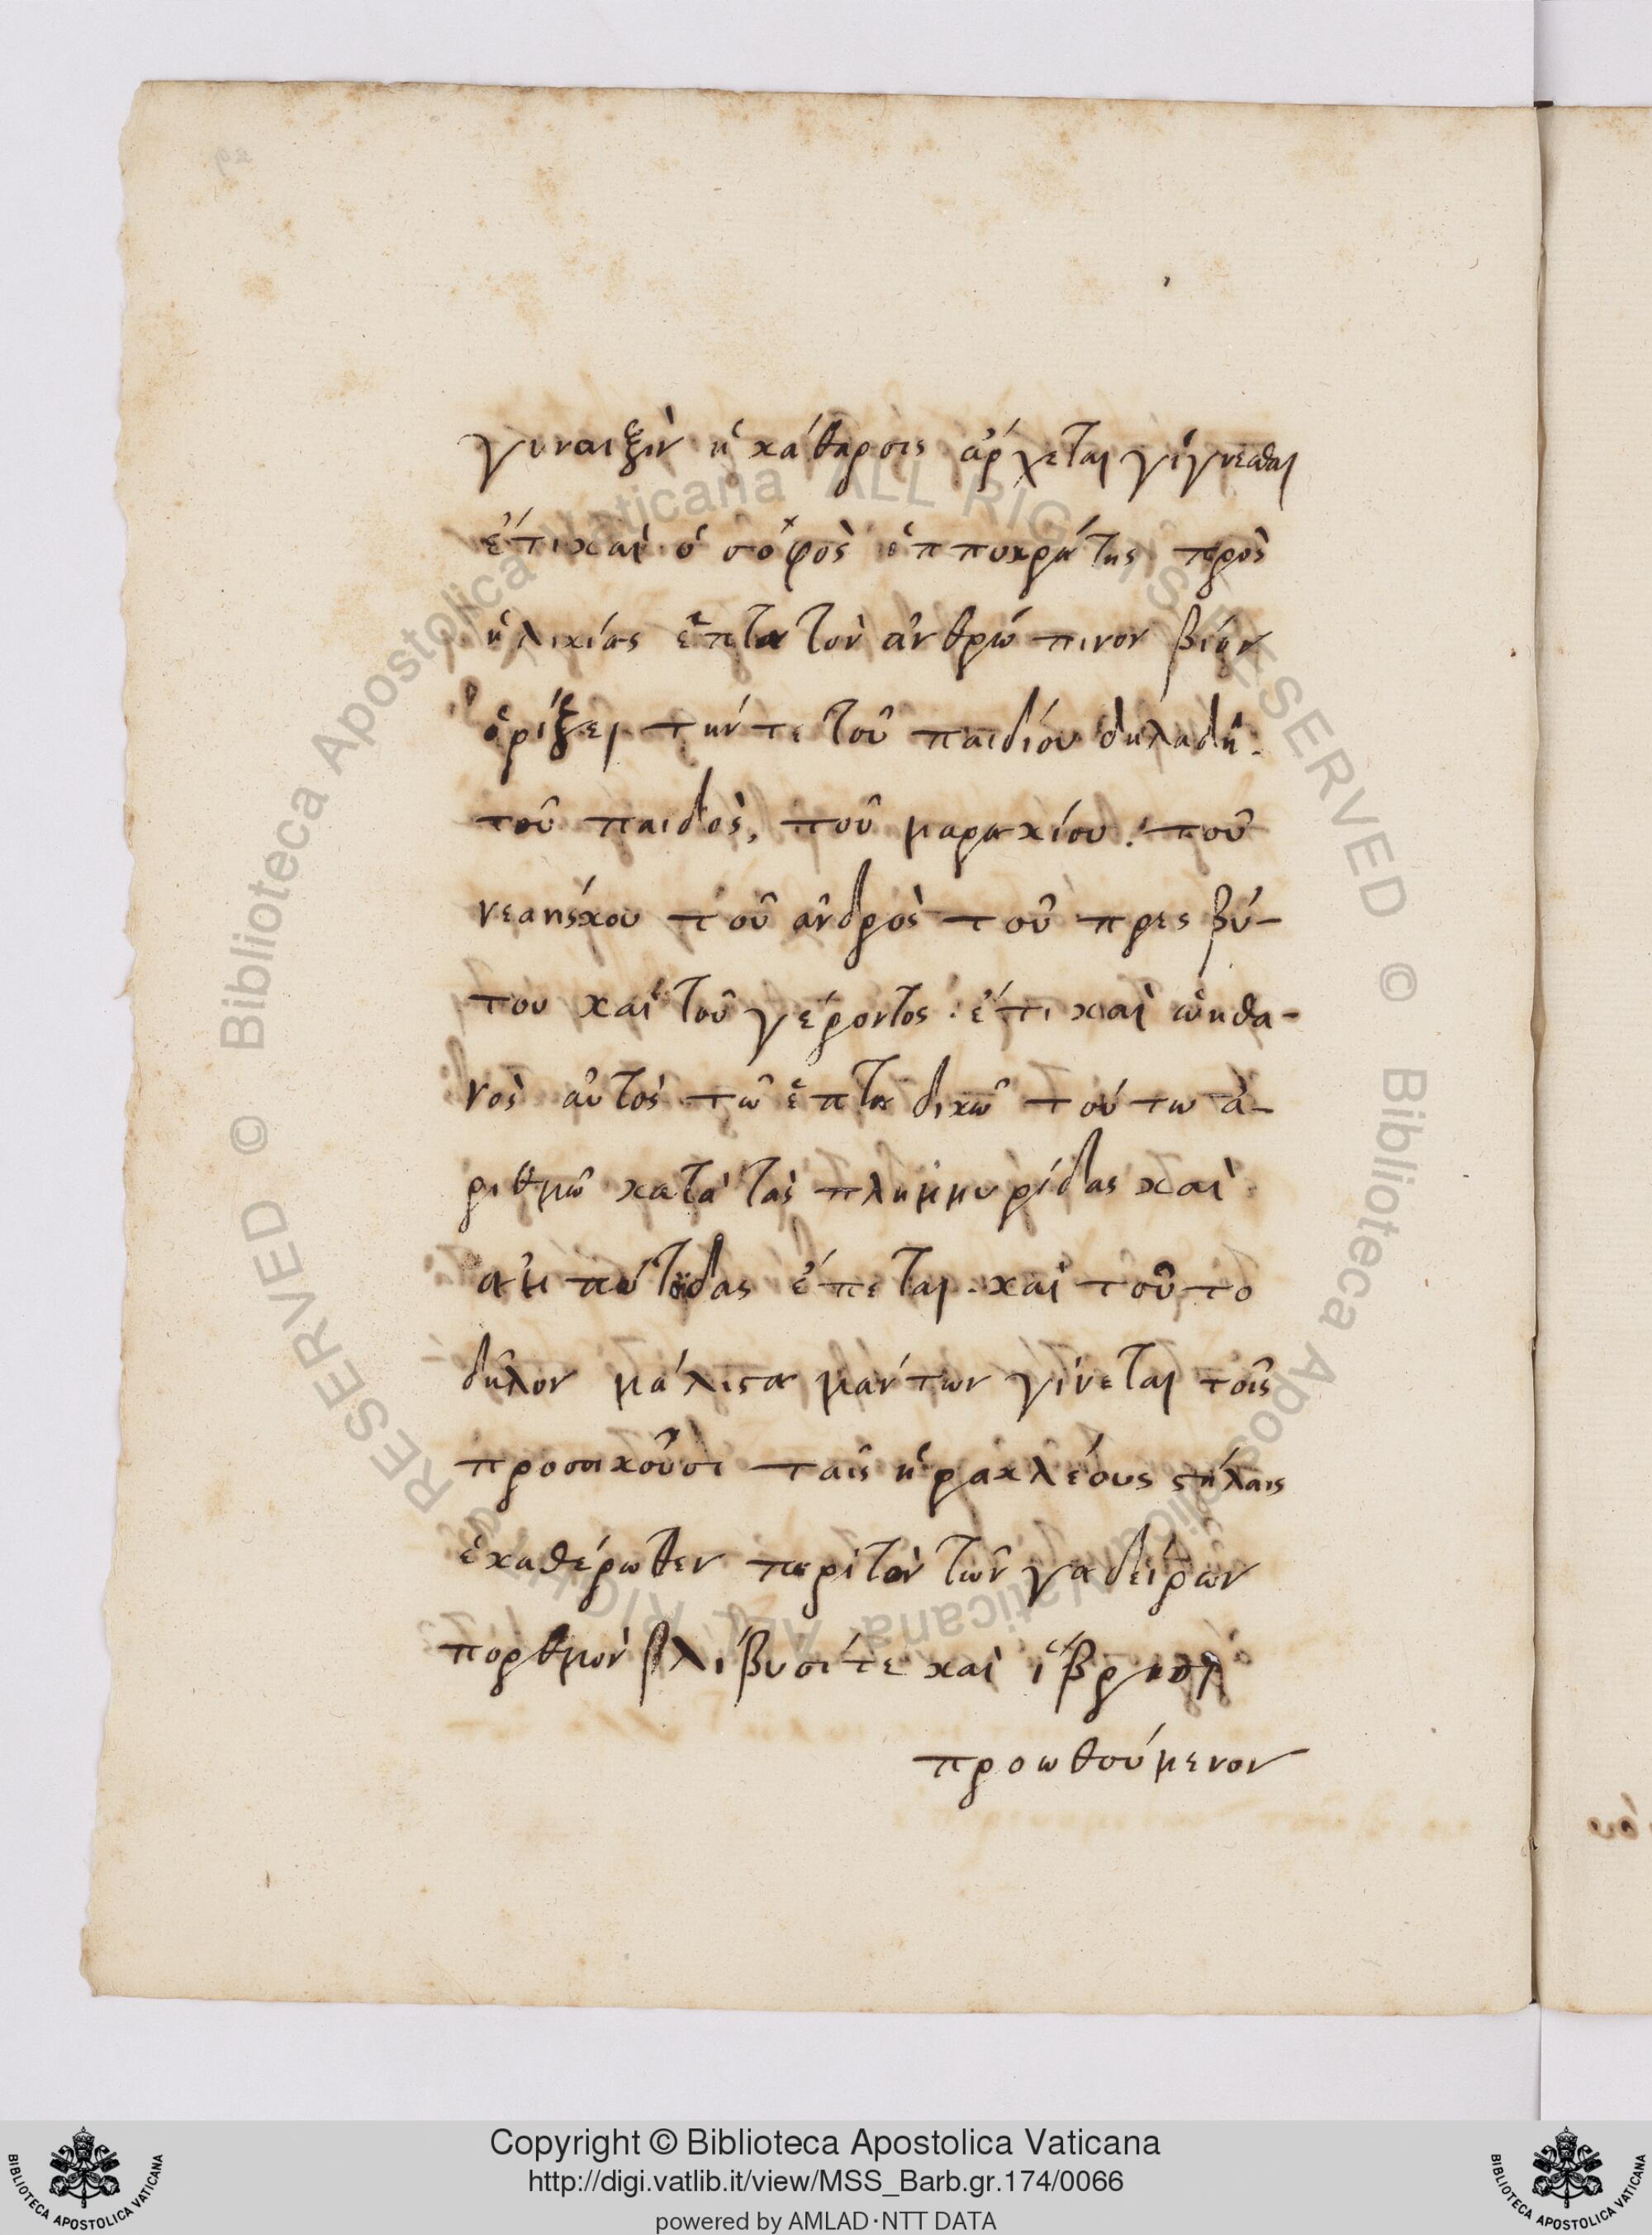 γυναιξὶν ἡ κάθαρσις ἄρχεται γίγνεσθαι
ἔτι καὶ ὁ σοφὸς ἱπποκράτης πρὸς
ἡλικίας ἑπτα τὸν ἀνθρώπινον βίον
ὁρίζει τήν τε τοῦ παιδίου δηλαδή.
τοῦ παιδὸς, τοῦ μαρακίου. τοῦ
νεανήσκου τοῦ ἀνδρὸς τοῦ πρεσβύ-
του καὶ τοῦ γέροντος. ἔτι καὶ ὠκηθα-
νὸς αὐτὸς τῶ ἑπταδικῶ τούτω ἀ-
ριθμῶ κατὰ τὰς πλημμυρίδας καὶ
ἀμπώτοδας ἕπεται. καὶ τοῦτο
δῆλον μάλιστα μάντων γίνεται τοῖς
προσοικοῦσι ταῖς ἡρακλέους στήλαις
ἑκαθέρωθεν περὶ τὸν τῶν γαδείρων
πορθμὸν λίβυσί τε καὶ
προωθούμενον
Copyright © Biblioteca Apostolica Vaticana
http://digi.vatlib.it/view/MSS_Barb.gr.174/0066
powered by AMLAD·NTT DATA
BIBLIOTECA APOSTOLICA VATICANA
BIBLIOTECA APOSTOLICA VATICANA
© Biblioteca Apostolica Vaticana ALL RIGHTS RESERVED
© Biblioteca Apostolica Vaticana ALL RIGHTS RESERVED